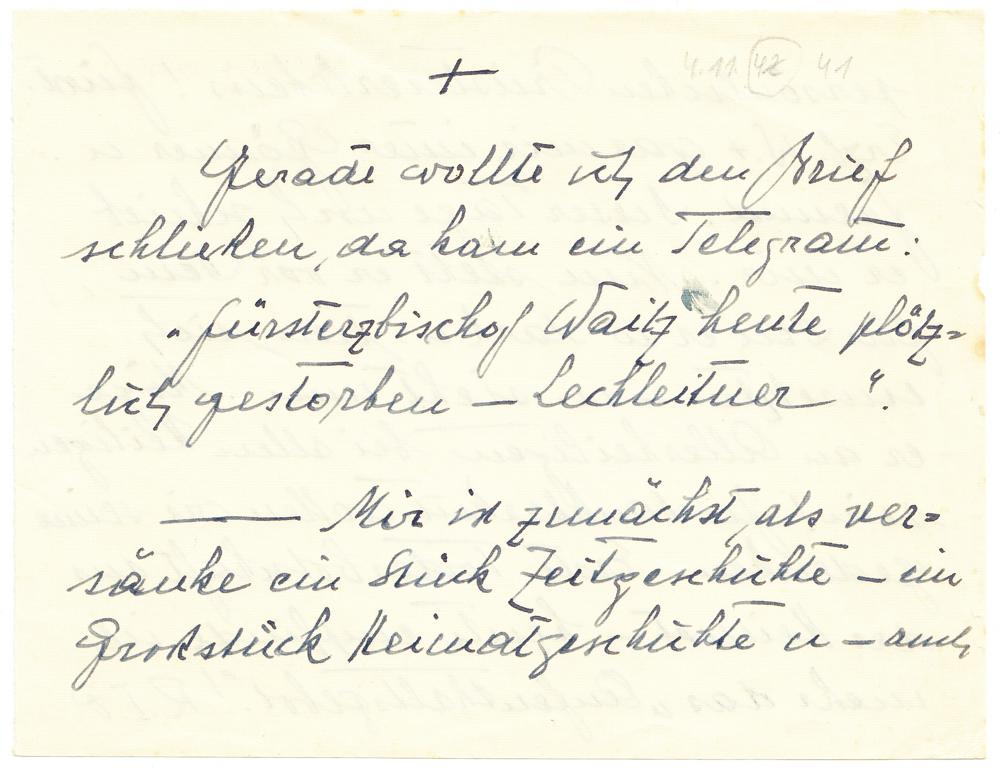 4.11. 42 41
+
Gerade wollte ich den Brief
schließen, da kam ein Telegram:
"Fürsterzbischof Waitz heute plötz=
lich gestorben – Lechleitner".
—— Mir ist zunächst, als ver=
sänke ein Stück Zeitgeschichte – ein
Großstück Heimatgeschichte u – auch